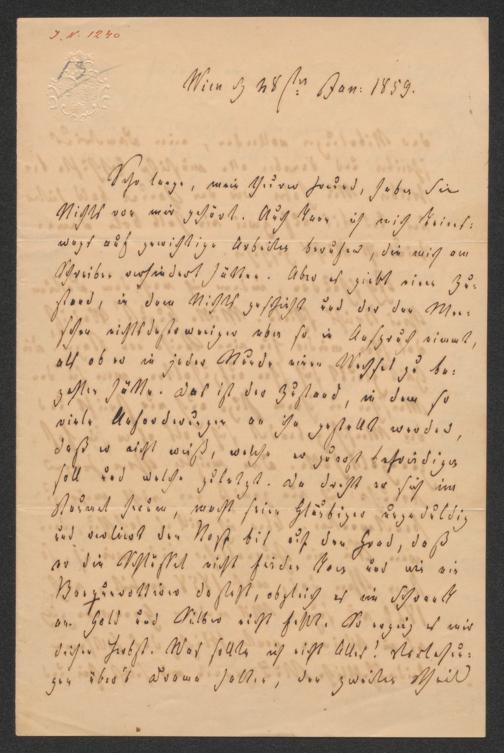 J. N. 1240
13
Wien d 28sten Jan: 1859.
Sehr lange, mein theurer Freund, haben Sie
Nichts von mir gehört. Auch kann ich mich keines-
wegs auf gewichtige Arbeiten berufen, die mich am
Schreiben verhindert hätten. Aber es giebt einen Zu-
stand, in dem Nichts geschieht und der den Men-
schen nichtsdestoweniger eben so in Anspruch nimmt,
als ob er in jeder Stunde einen Wechsel zu be-
zahlen hätte. Das ist der Zustand, in dem so
viele Anforderungen an ihn gestellt werden,
daß er nicht weiß, welche er zuerst befriedigen
soll und welche zuletzt. Da dreht er sich im
herum, macht seine Gläubiger ungeduldig
und verliert den Kopf bis auf den Grad, daß
er die Schlüssel nicht finden kann und wie ein
Banquerottirer dasteht, obgleich es im Schrank
an Gold und Silber nicht fehlt. So erging es mir
diesen Herbst. Was sollte ich nicht Alles! Vorlesun-
gen über's Drama halten, den zweiten Theil